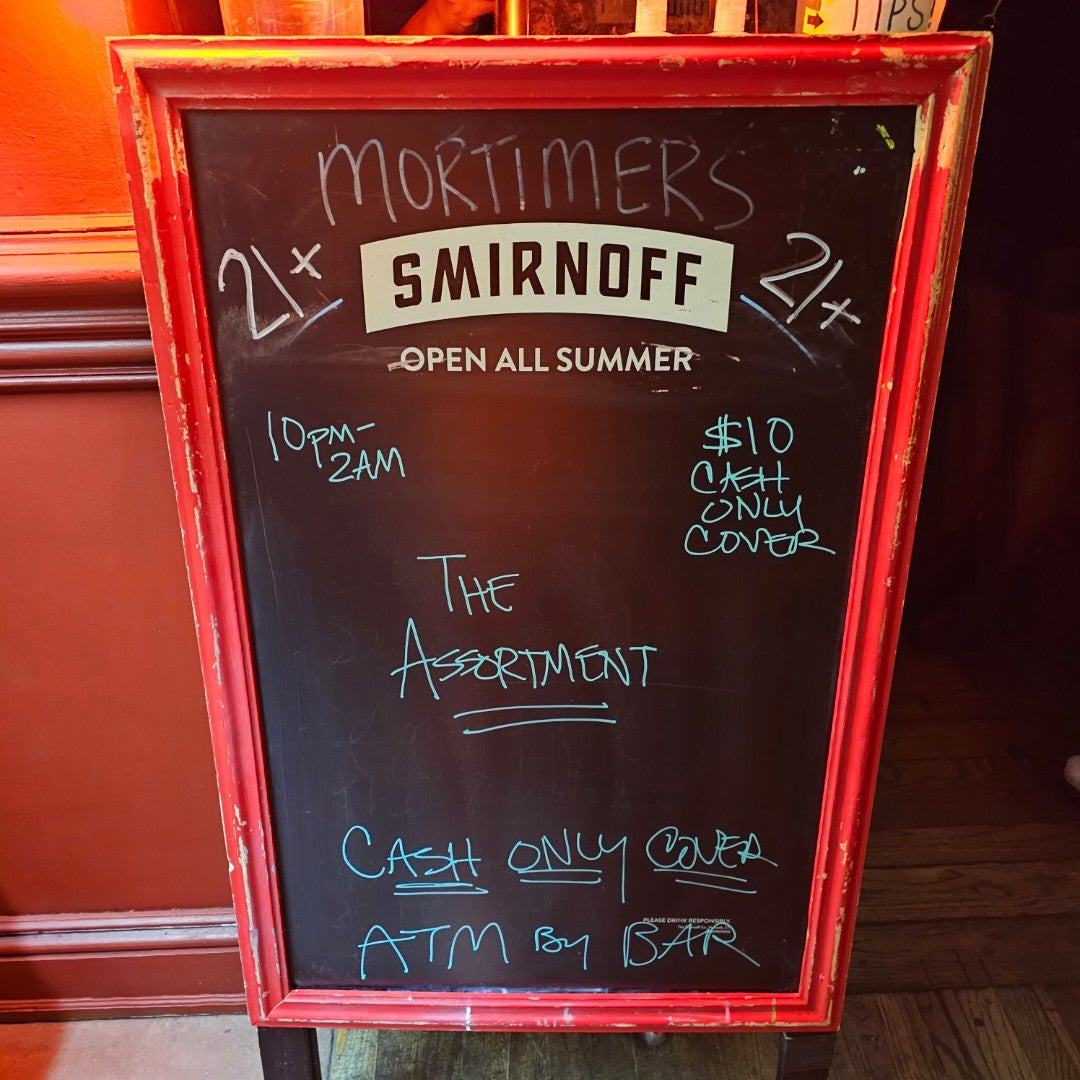 TIPS
MORTIMERS
21+ SMIRNOFF 21+
OPEN ALL SUMMER
10PM-
2AM
$10
CASH
ONLY
COVER
THE
ASSORTMENT
CASH ONLY COVER
PLEASE DRINK RESPONSIBLY.
ATM BY BAR